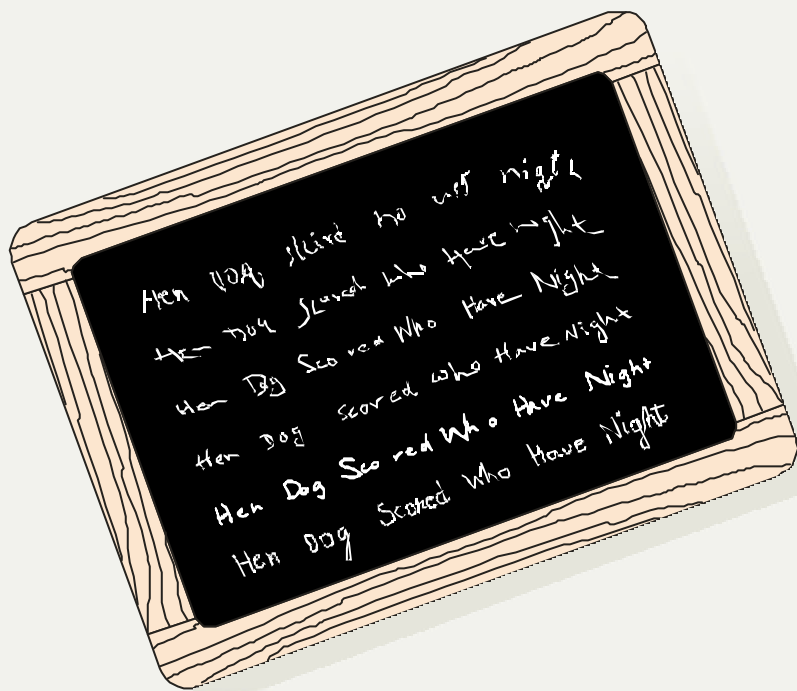 Hen Dog no not night
Hen Dog Scored who Have night
Hen Dog Scored Who Have Night
Hen Dog scored who Have Night
Hen Dog Scored Who Have Night
Hen Dog Scored Who Have Night